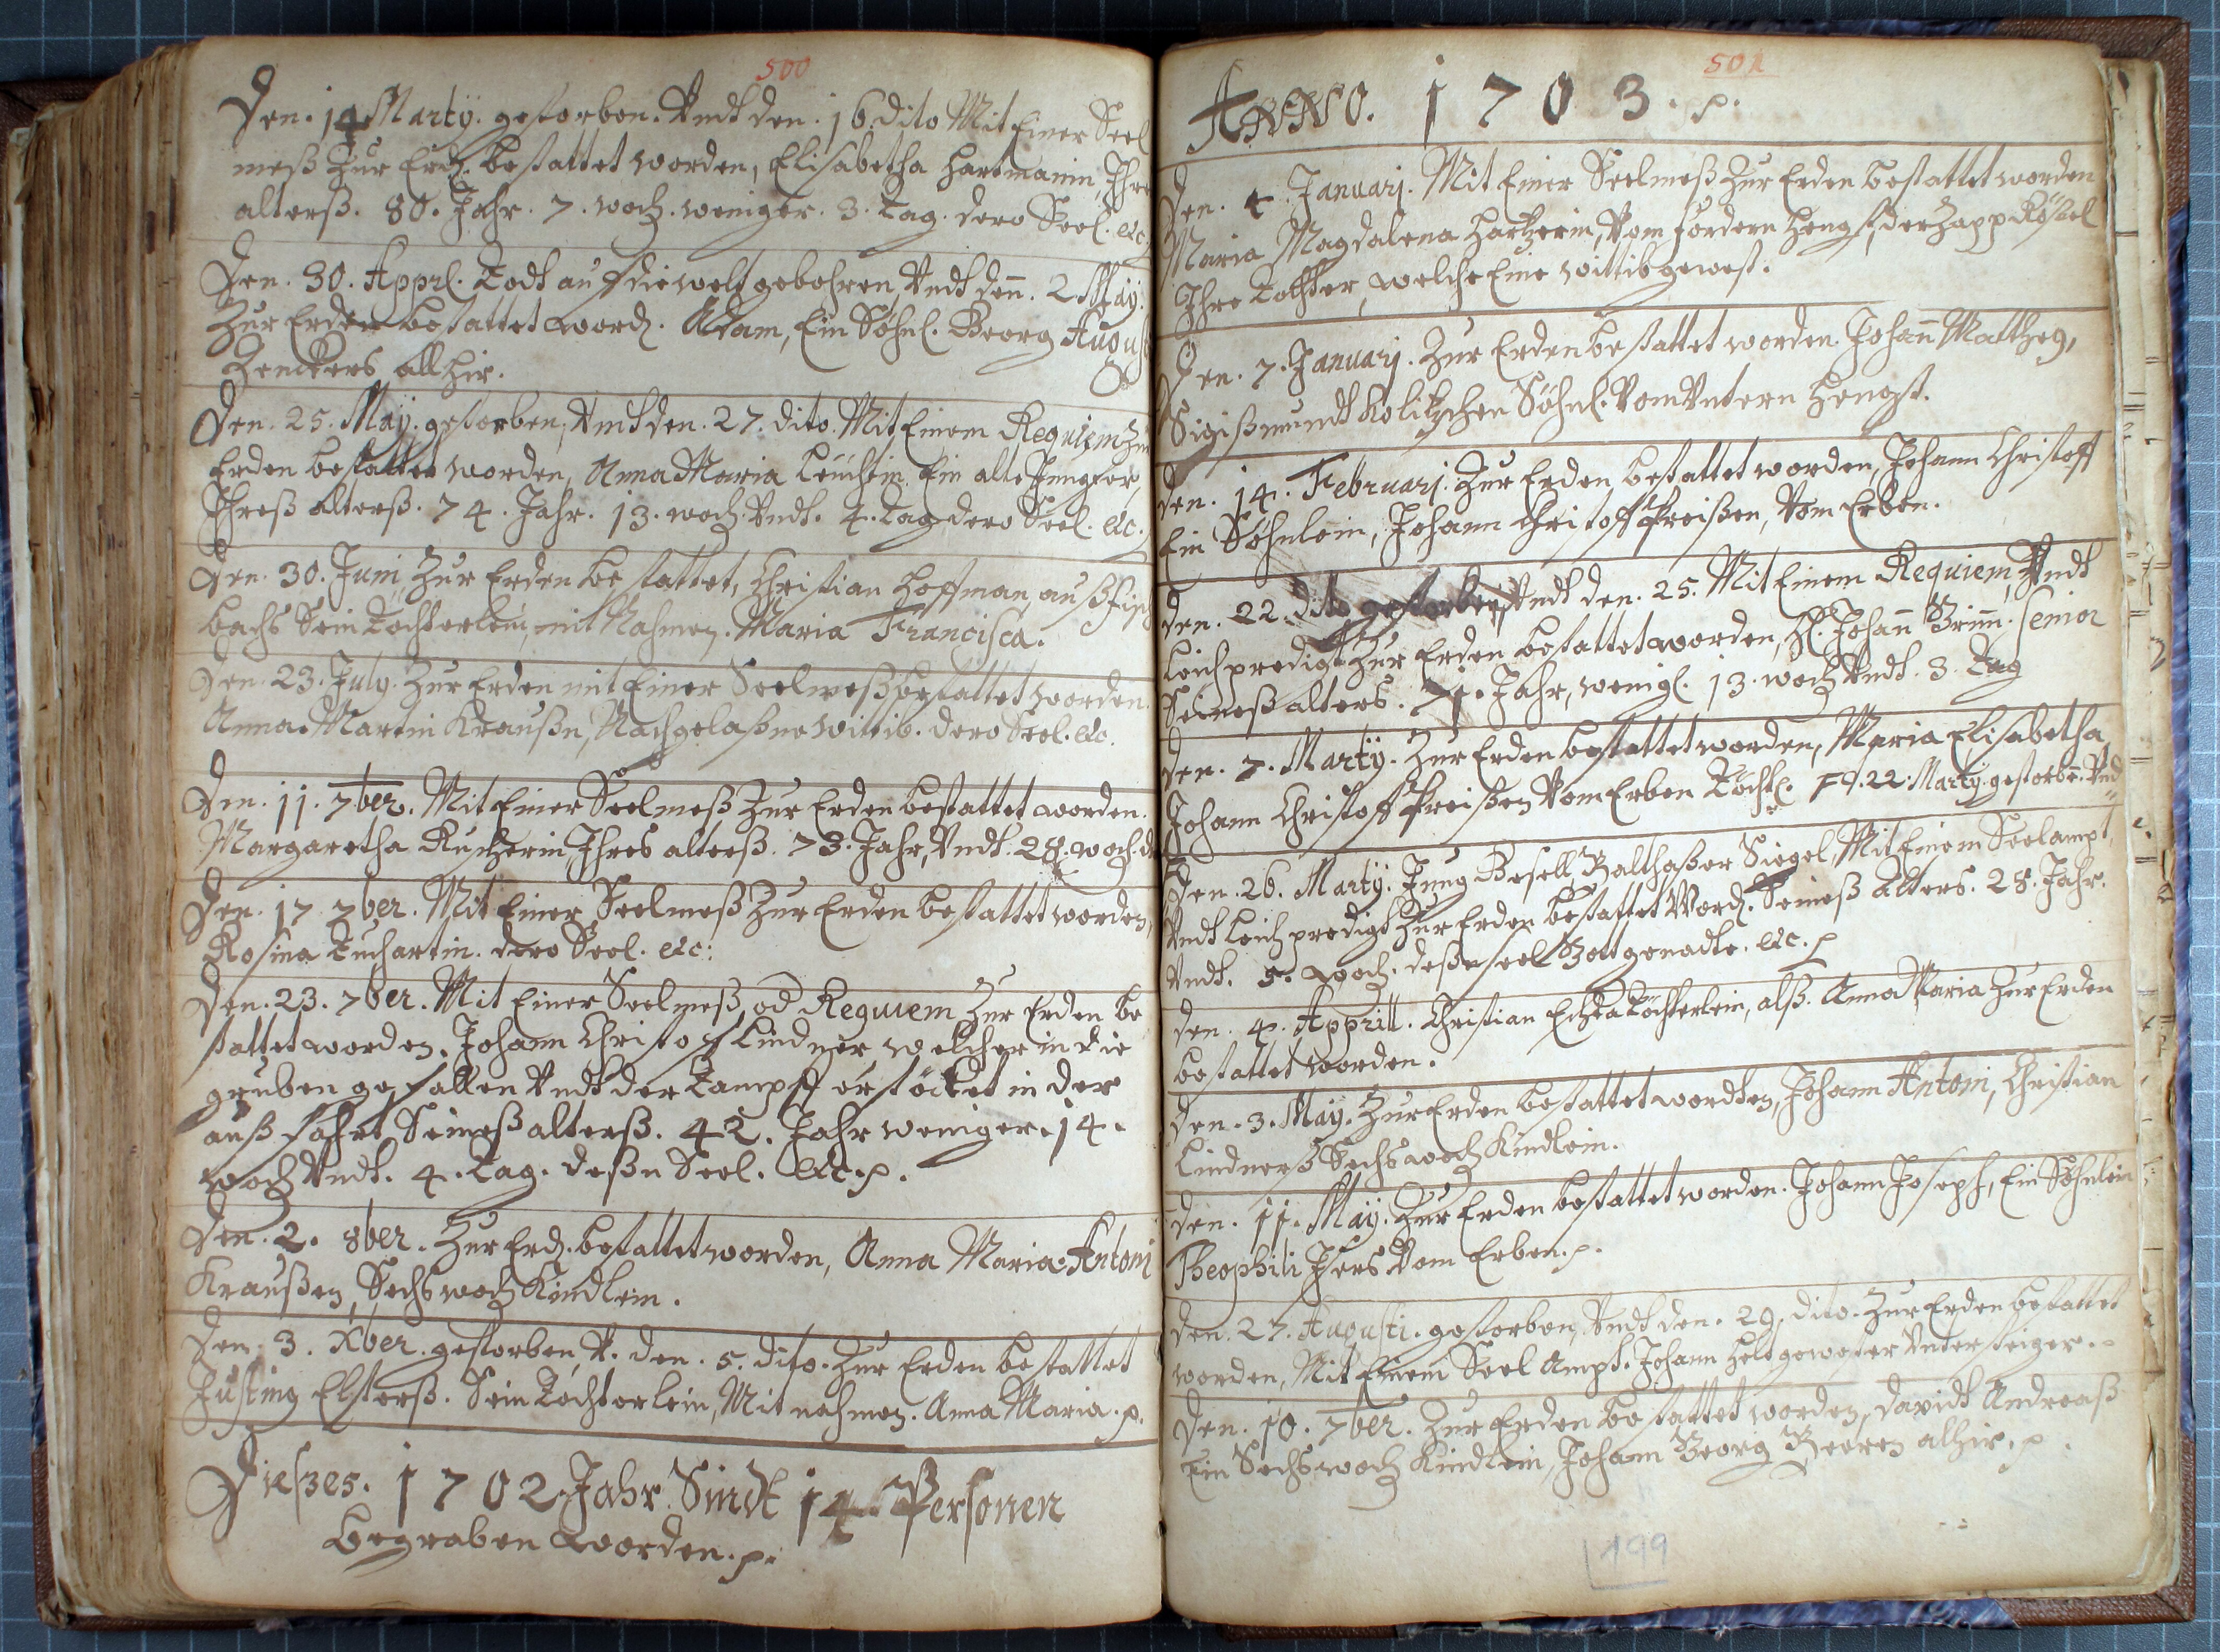 500
Den. 14 Martÿ. gestorben. Vndt den. 16. dito Mit Einer Seel
meß Zur Erd. bestattet worden, Elisabetha Hartmanin, Ihre
alterß. 80. Jahr. 7. woch. weniger. 3. Tag. dero Seel. etc.
Den. 30. Apprl. Todt auf die welt gebohren, Vndt den. 2 Maÿ.
Zur Erden bestattet word. Adam, Ein Söhnl. Georg August
Zenckers allhir.
Den. 25. Maÿ. gestorben, Vndt den. 27. dito. Mit Einem Requiem Zur
Erden bestattet worden, Anna Maria Ein alte Jungfer,
Ihreß alterß. 74. Jahr. 13. woch. Vndt. 4. Tag dero Seel. etc.
Den. 30. Juni, Zur Erden bestattet, Christian Hoffman, auß Fisch
bachs Sein Tochterlein, mit Nahmen. Maria Francisca.
Den. 23. July. Zur Erden mit Einer Seelmeß bestattet worden.
Anna. Martin Kraußn, Nachgelaßne Wittib. dero Seel. etc.
Den. 11. 7ber. Mit Einer Seelmeß Zur Erden bestattet worden.
Margaretha Ihres alterß. 73. Jahr, Vndt. 28. woch. d
Den. 17 7ber. Mit Einer Seelmeß Zur Erden bestattet worden,
Rosina Tuchartin. dero Seel. etc:
Den. 23. 7ber. Mit Einer Seelmeß od Requiem Zur Erden be
stattet worden. Johann Christoff Lindner welcher in die
gruben gefallen Vndt der Dampff erstöcket in der
auß fahrt Seineß alterß. 42. Jahr weniger. 14.
woch Vndt. 4. Tag. deßn Seel. etc. p.
Den. 2. 8ber. Zur Erd. bestattet worden, Anna Maria Antoni
Kraußen, Sechs woch Kindlein.
Den. 3. Xber. gestorben, V. den. 5. dito. Zur Erden bestattet
Elsterß. Sein Töchterlein, Mit nahmen. Anna Maria. p.
Dieses. 1702 Jahr. Sindt 14. Personen
begraben worden. p.
501
ANNO. 1703. p.
Den. 4. Januarj. Mit Einer Seelmeß Zur Erden bestattet worden
Maria Magdalena Hartzerin, Vom fordern Hengst, der
Ihre Tochter, welche Eine wittib gewest.
Den. 7. Januarj. Zur Erden bestattet worden Johann Mattheß,
Sigißmundt Kolitzschen Söhnl. Vom Vntern Hengst.
Den. 14. Februarj. Zur Erden bestattet worden, Johann Christoff
Ein Söhnlein, Johann Christoff Preißen, Vom Erben.
Den. 22. dito gestorben, Vndt den. 25. Mit Einem Requiem, Vndt
Leichpredigt Zur Erden bestattet worden, H. Johan Grim. Senior
Seineß alters. 74. Jahr, wenigl. 13. woch Vndt. 3. Tag
Den. 7. Martÿ. Zur Erden bestattet worden, Maria Elisabetha
Johann Christoff Preißen Vom Erben Töchtl. d. 22. Martÿ. gestorbe. Vnd
Den. 26. Martÿ. Jung Gesell Balthaßer Siegel, Mit Einem Seelampt,
Vndt Leichpredigt Zur Erden bestattet Word. Seineß Alters. 28. Jahr.
Vndt. 5. woch. deßn seel Gott genadte. etc. p
Den. 4. Apprill. Christian Töchterlein, alß. Anna Maria Zur Erden
bestattet worden.
Den. 3. Maÿ. Zur Erden bestattet wordten, Johann Antoni, Christian
Lindnerß Sechs woch Kindlein.
Den. 11. Maÿ. Zur Erden bestattet worden. Johann Joseph, Ein Söhnlein
Theophili Vom Erben. p.
Den. 27. Augusti. gestorben, Vndt den. 29. dito. Zur Erden bestattet
worden, Mit Einem Seel Ampt. Johann gewester Vntersteiger.
Den. 10. 7ber. Zur Erden bestattet worden, Davidt Andreaß
Ein Sechs woch Kindlein, Johann Georg Beeren alhir. p.
199